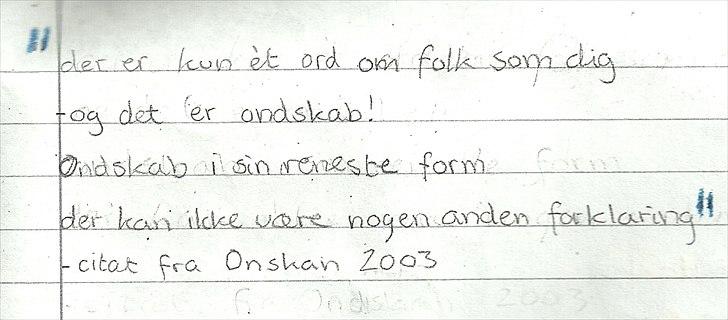 "der er kun èt ord om folk som dig
-og det er ondskab!
Ondskab i sin reneste form
der kan ikke være nogen anden forklaring"
-citat fra Onskan 2003